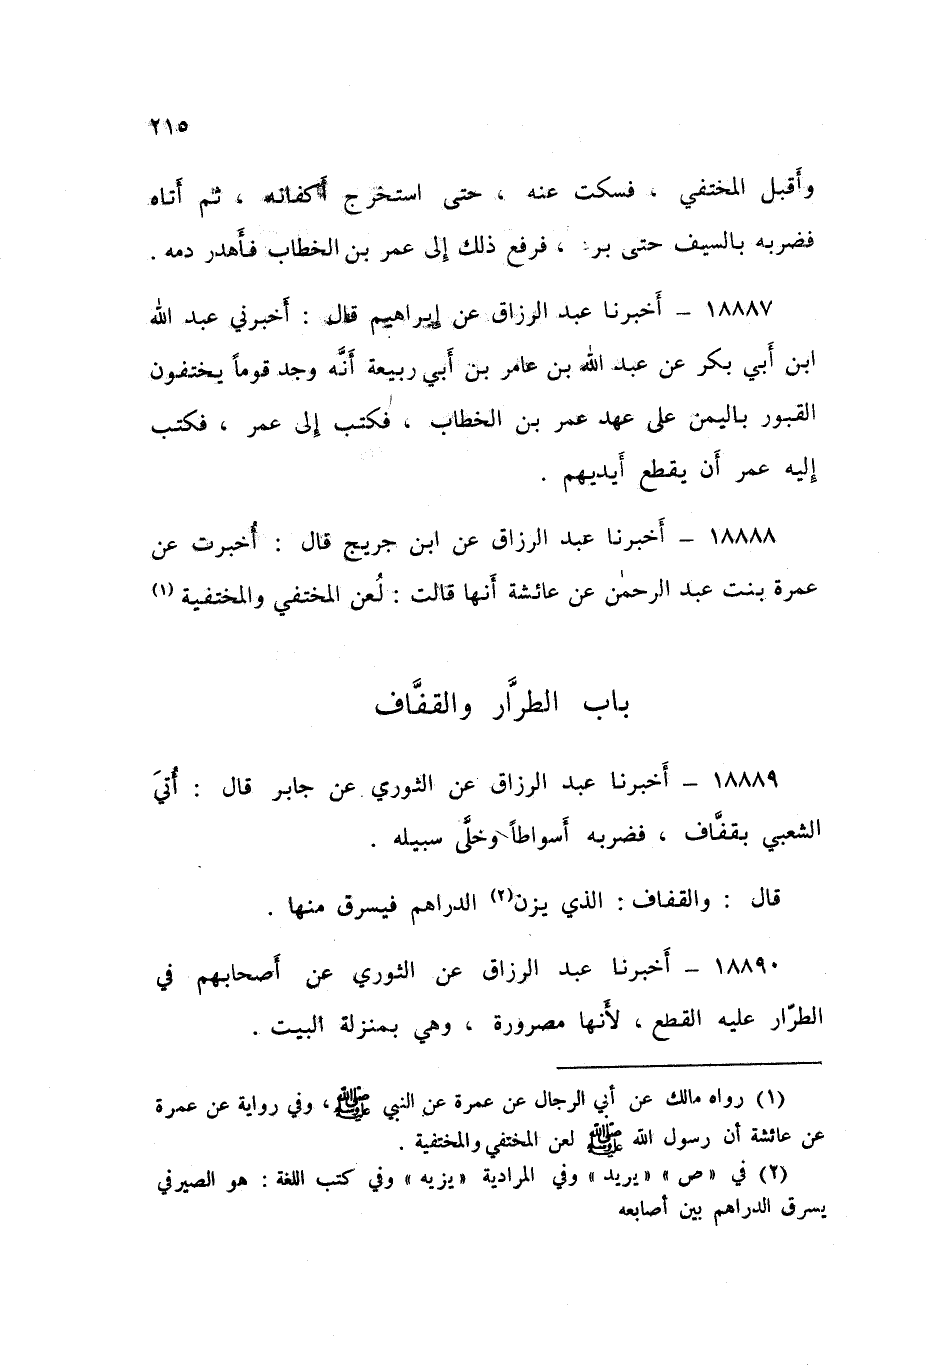 ٢١٥
وأَقبل المختفي ، فسكت عنه ، حتى استخرج أَكفانه ، ثم أَتاه
فضربه بالسيف حتى برد ، فرفع ذلك إلى عمر بن الخطاب فأَهدر دمه .
١٨٨٨٧ – أَخبرنا عبد الرزاق عن إبراهيم قال : أَخبرني عبد الله
ابن أَبي بكر عن عبد الله بن عامر بن أَبي ربيعة أَنَّه وجد قوماً يختفون
القبور باليمن على عهد عمر بن الخطاب ، فكتب إلى عمر ، فكتب
إليه عمر أَن يقطع أَيديهم .
١٨٨٨٨ – أَخبرنا عبد الرزاق عن ابن جريج قال : أُخبرت عن
عمرة بنت عبد الرحمٰن عن عائشة أَنها قالت : لُعن المختفي والمختفية (١)
باب الطرَّار والقفَّاف
١٨٨٨٩ – أَخبرنا عبد الرزاق عن الثوري عن جابر قال : أُتيَ
الشعبي بقفَّاف ، فضربه أَسواطاً وخلَّى سبيله .
قال : والقفاف : الذي يزن(٢) الدراهم فيسرق منها .
١٨٨٩٠ – أَخبرنا عبد الرزاق عن الثوري عن أَصحابهم في
الطرّار عليه القطع ، لأَنها مصرورة ، وهي بمنزلة البيت .
(١) رواه مالك عن أبي الرجال عن عمرة عن النبي ﷺ ، وفي رواية عن عمرة
عن عائشة أن رسول الله ﷺ لعن المختفي والمختفية .
(٢) في «ص» «يريد» وفي المرادية «يزيه» وفي كتب اللغة : هو الصيرفي
يسرق الدراهم بين أصابعه